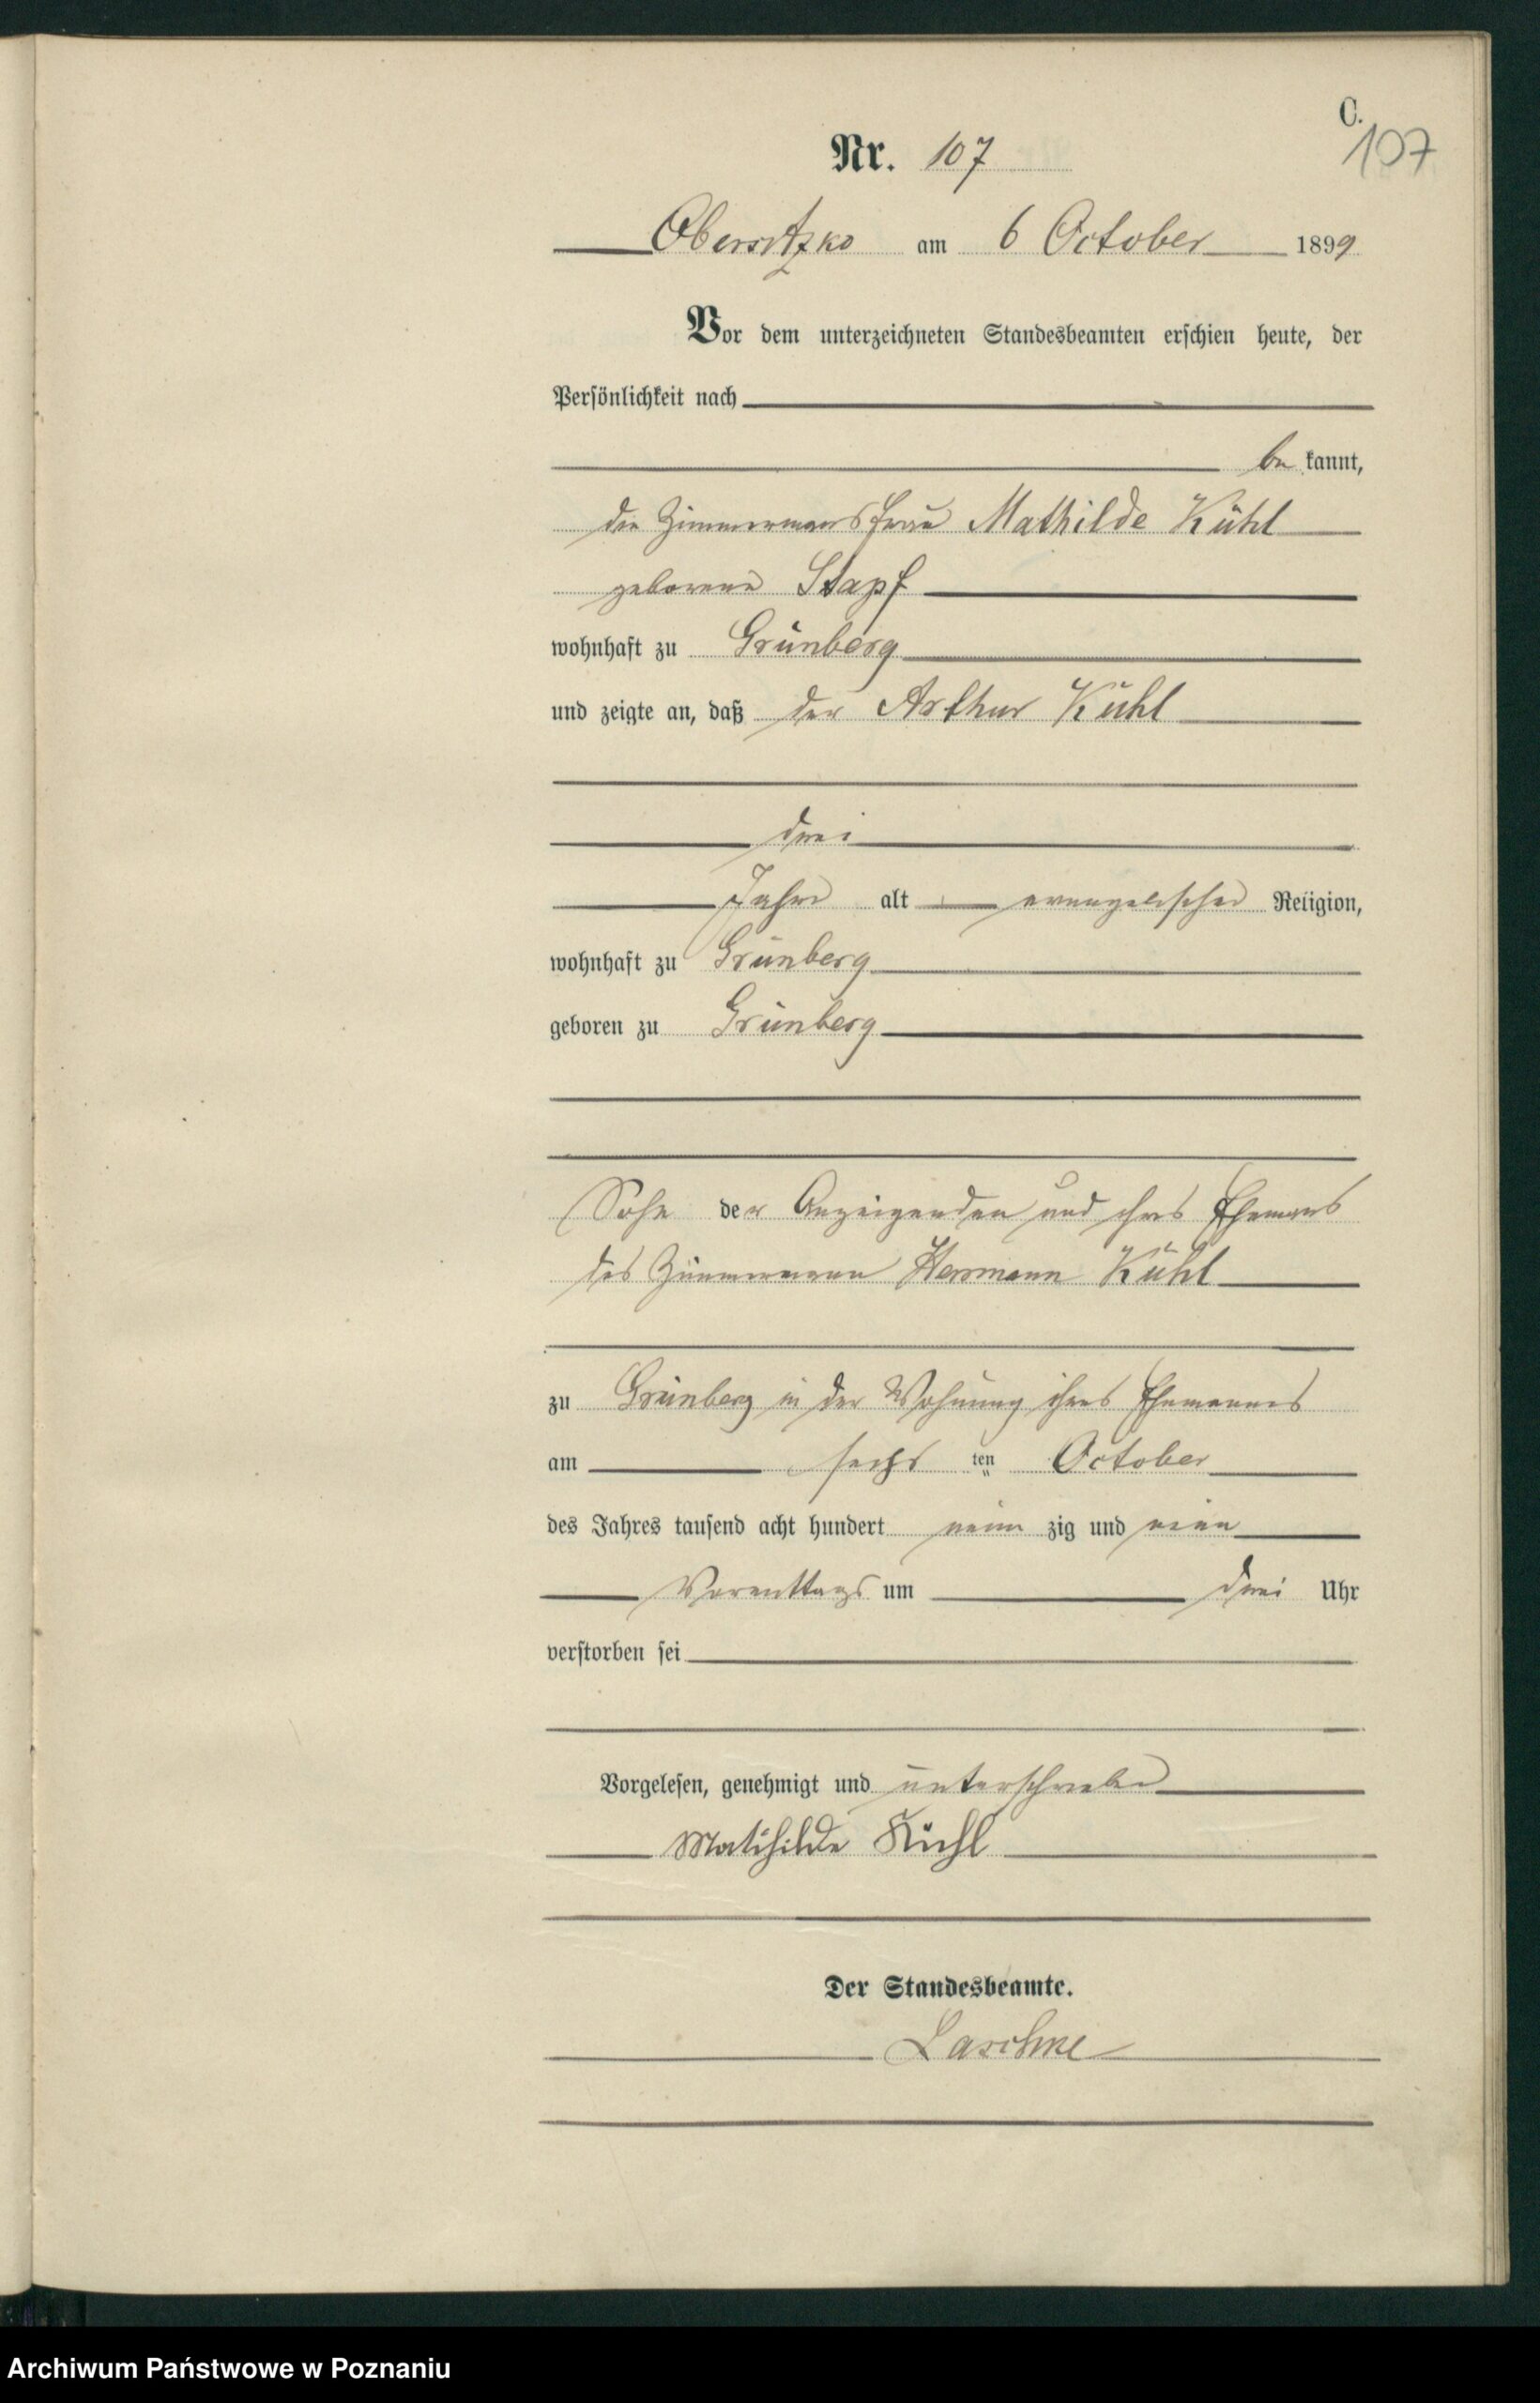 C.
107
Nr. 107
Obersitzko am 6 October 1899
Vor dem unterzeichneten Standesbeamten erschien heute, der
Persönlichkeit nach
be kannt,
die Zimmermansfrau Mathilde Kühl
geborene Stapf
wohnhaft zu Grünberg
und zeigte an, daß der Arthur Kühl
drei
Jahre alt evangelischer Religion,
wohnhaft zu Grünberg
geboren zu Grünberg
Sohn der Anzeigenden und ihres Ehemans
des Zimmermann Hermann Kühl
zu Grünberg in der Wohnung ihres Ehemannes
am sechs ten October
des Jahres tausend acht hundert neun zig und neun
Vormittags um drei Uhr
verstorben sei
Vorgelesen, genehmigt und unterschrieben
Mathilde Kühl
Der Standesbeamte.
Archiwum Państwowe w Poznaniu